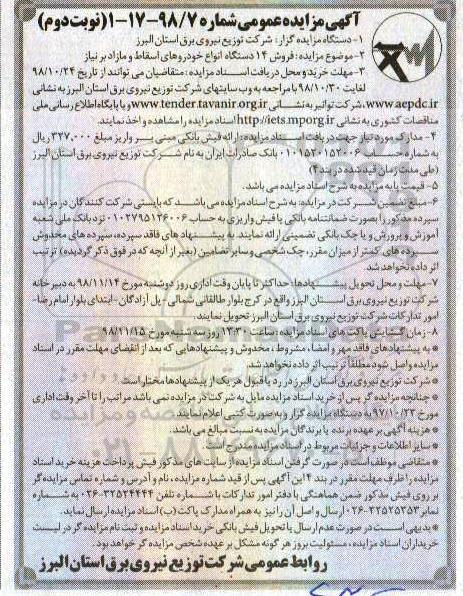 آگهی مزایده عمومی شماره ۹۸/۷-۱۷-۱ (نوبت دوم)
۱- دستگاه مزایده گزار: شرکت توزیع نیروی برق استان البرز
۲- موضوع مزایده: فروش ۱۴ دستگاه انواع خودروهای اسقاط و مازاد بر نیاز
۳- مهلت خرید و محل دریافت اسناد مزایده: متقاضیان می توانند از تاریخ ۹۸/۱۰/۲۴
لغایت ۹۸/۱۰/۳۰ با مراجعه به وب سایتهای شرکت توزیع نیروی برق استان البرز به نشانی
www.aepdc.ir، شرکت توانیر به نشانی www.tender.tavanir.org.ir و یا پایگاه اطلاع رسانی ملی
مناقصات کشوری به نشانی http://iets.mporg.ir اسناد مزایده را مشاهده و اخذ نمایند.
۴- مدارک مورد نیاز جهت دریافت اسناد مزایده: ارائه فیش بانکی مبنی بر واریز مبلغ ۳۲۷,۰۰۰ ریال
به شماره حساب ۰۱۰۱۵۳۰۱۵۲۰۰۶ بانک صادرات ایران به نام شرکت توزیع نیروی برق استان البرز
(طی مدت زمان قید شده در بند ۳)
۵- قیمت پایه مزایده به شرح اسناد مزایده می باشد.
۶- مبلغ تضمین شرکت در مزایده: به شرح اسناد مزایده می باشد که بایستی شرکت کنندگان در مزایده
سپرده مذکور را بصورت ضمانتنامه بانکی یا فیش واریزی به حساب ۰۱۰۲۷۹۵۱۳۶۰۰۶ نزد بانک ملی شعبه
آموزش و پرورش و یا چک بانکی تضمینی ارائه نمایند. به پیشنهاد های فاقد سپرده، سپرده های مخدوش
سپرده های کمتر از میزان مقرر، چک شخصی و سایر تضامین (بغیر از آنچه که در فوق ذکر گردیده) ترتیب
اثر داده نخواهد شد.
۷- مهلت و محل تحویل پیشنهادها: حداکثر تا پایان وقت اداری روز دوشنبه مورخ ۹۸/۱۱/۱۴ به دبیرخانه
شرکت توزیع نیروی برق استان البرز واقع در کرج بلوار طالقانی شمالی - پل آزادگان - ابتدای بلوار امام رضا -
امور تدارکات شرکت توزیع نیروی برق استان البرز تحویل نمایند.
۸- زمان گشایش پاکت های اسناد مزایده: ساعت ۱۳:۳۰ روز سه شنبه مورخ ۹۸/۱۱/۱۵
* به پیشنهادهای فاقد مهر و امضاء، مشروط، مخدوش و پیشنهادهایی که بعد از انقضای مهلت مقرر در اسناد
مزایده واصل شود مطلقاً ترتیب اثر داده نخواهد شد.
* شرکت توزیع نیروی برق استان البرز در رد یا قبول هر یک از پیشنهادها مختار است
* چنانچه مزایده گر پس از خرید اسناد مزایده مایل به شرکت در مزایده نمی باشد مراتب را تا آخر وقت اداری
مورخ ۹۷/۱۰/۲۳ به دستگاه مزایده گزار و به صورت کتبی اعلام نمایند.
* هزینه آگهی بر عهده برنده یا برندگان مزایده به نسبت مبالغ می باشد.
* سایر اطلاعات و جزئیات مربوط در اسناد مزایده مندرج است.
* متقاضی موظف است در صورت گرفتن اسناد مزایده از سایت های مذکور فیش پرداخت هزینه خرید اسناد
مزایده را ظرف مهلت مقرر در بند ۳ این آگهی پس از قید شماره مزایده، نام و آدرس و شماره تماس مزایده گر
بر روی فیش مذکور ضمن هماهنگی با دفتر امور تدارکات با شماره تلفن ۳۲۵۲۴۴۴۴-۰۲۶ به شماره
نمابر ۳۲۵۲۵۳۵۳-۰۲۶ ارسال و اصل آن را نیز به همراه مدارک پاکت (ب) اسناد مزایده ارسال نماید.
* بدیهی است در صورت عدم ارسال یا تحویل فیش بانکی خرید اسناد مزایده و ثبت نام مزایده گر در لیست
خریداران اسناد مزایده، مسئولیت بروز هر گونه مشکل بر عهده شخص مزایده گر خواهد بود.
روابط عمومی شرکت توزیع نیروی برق استان البرز